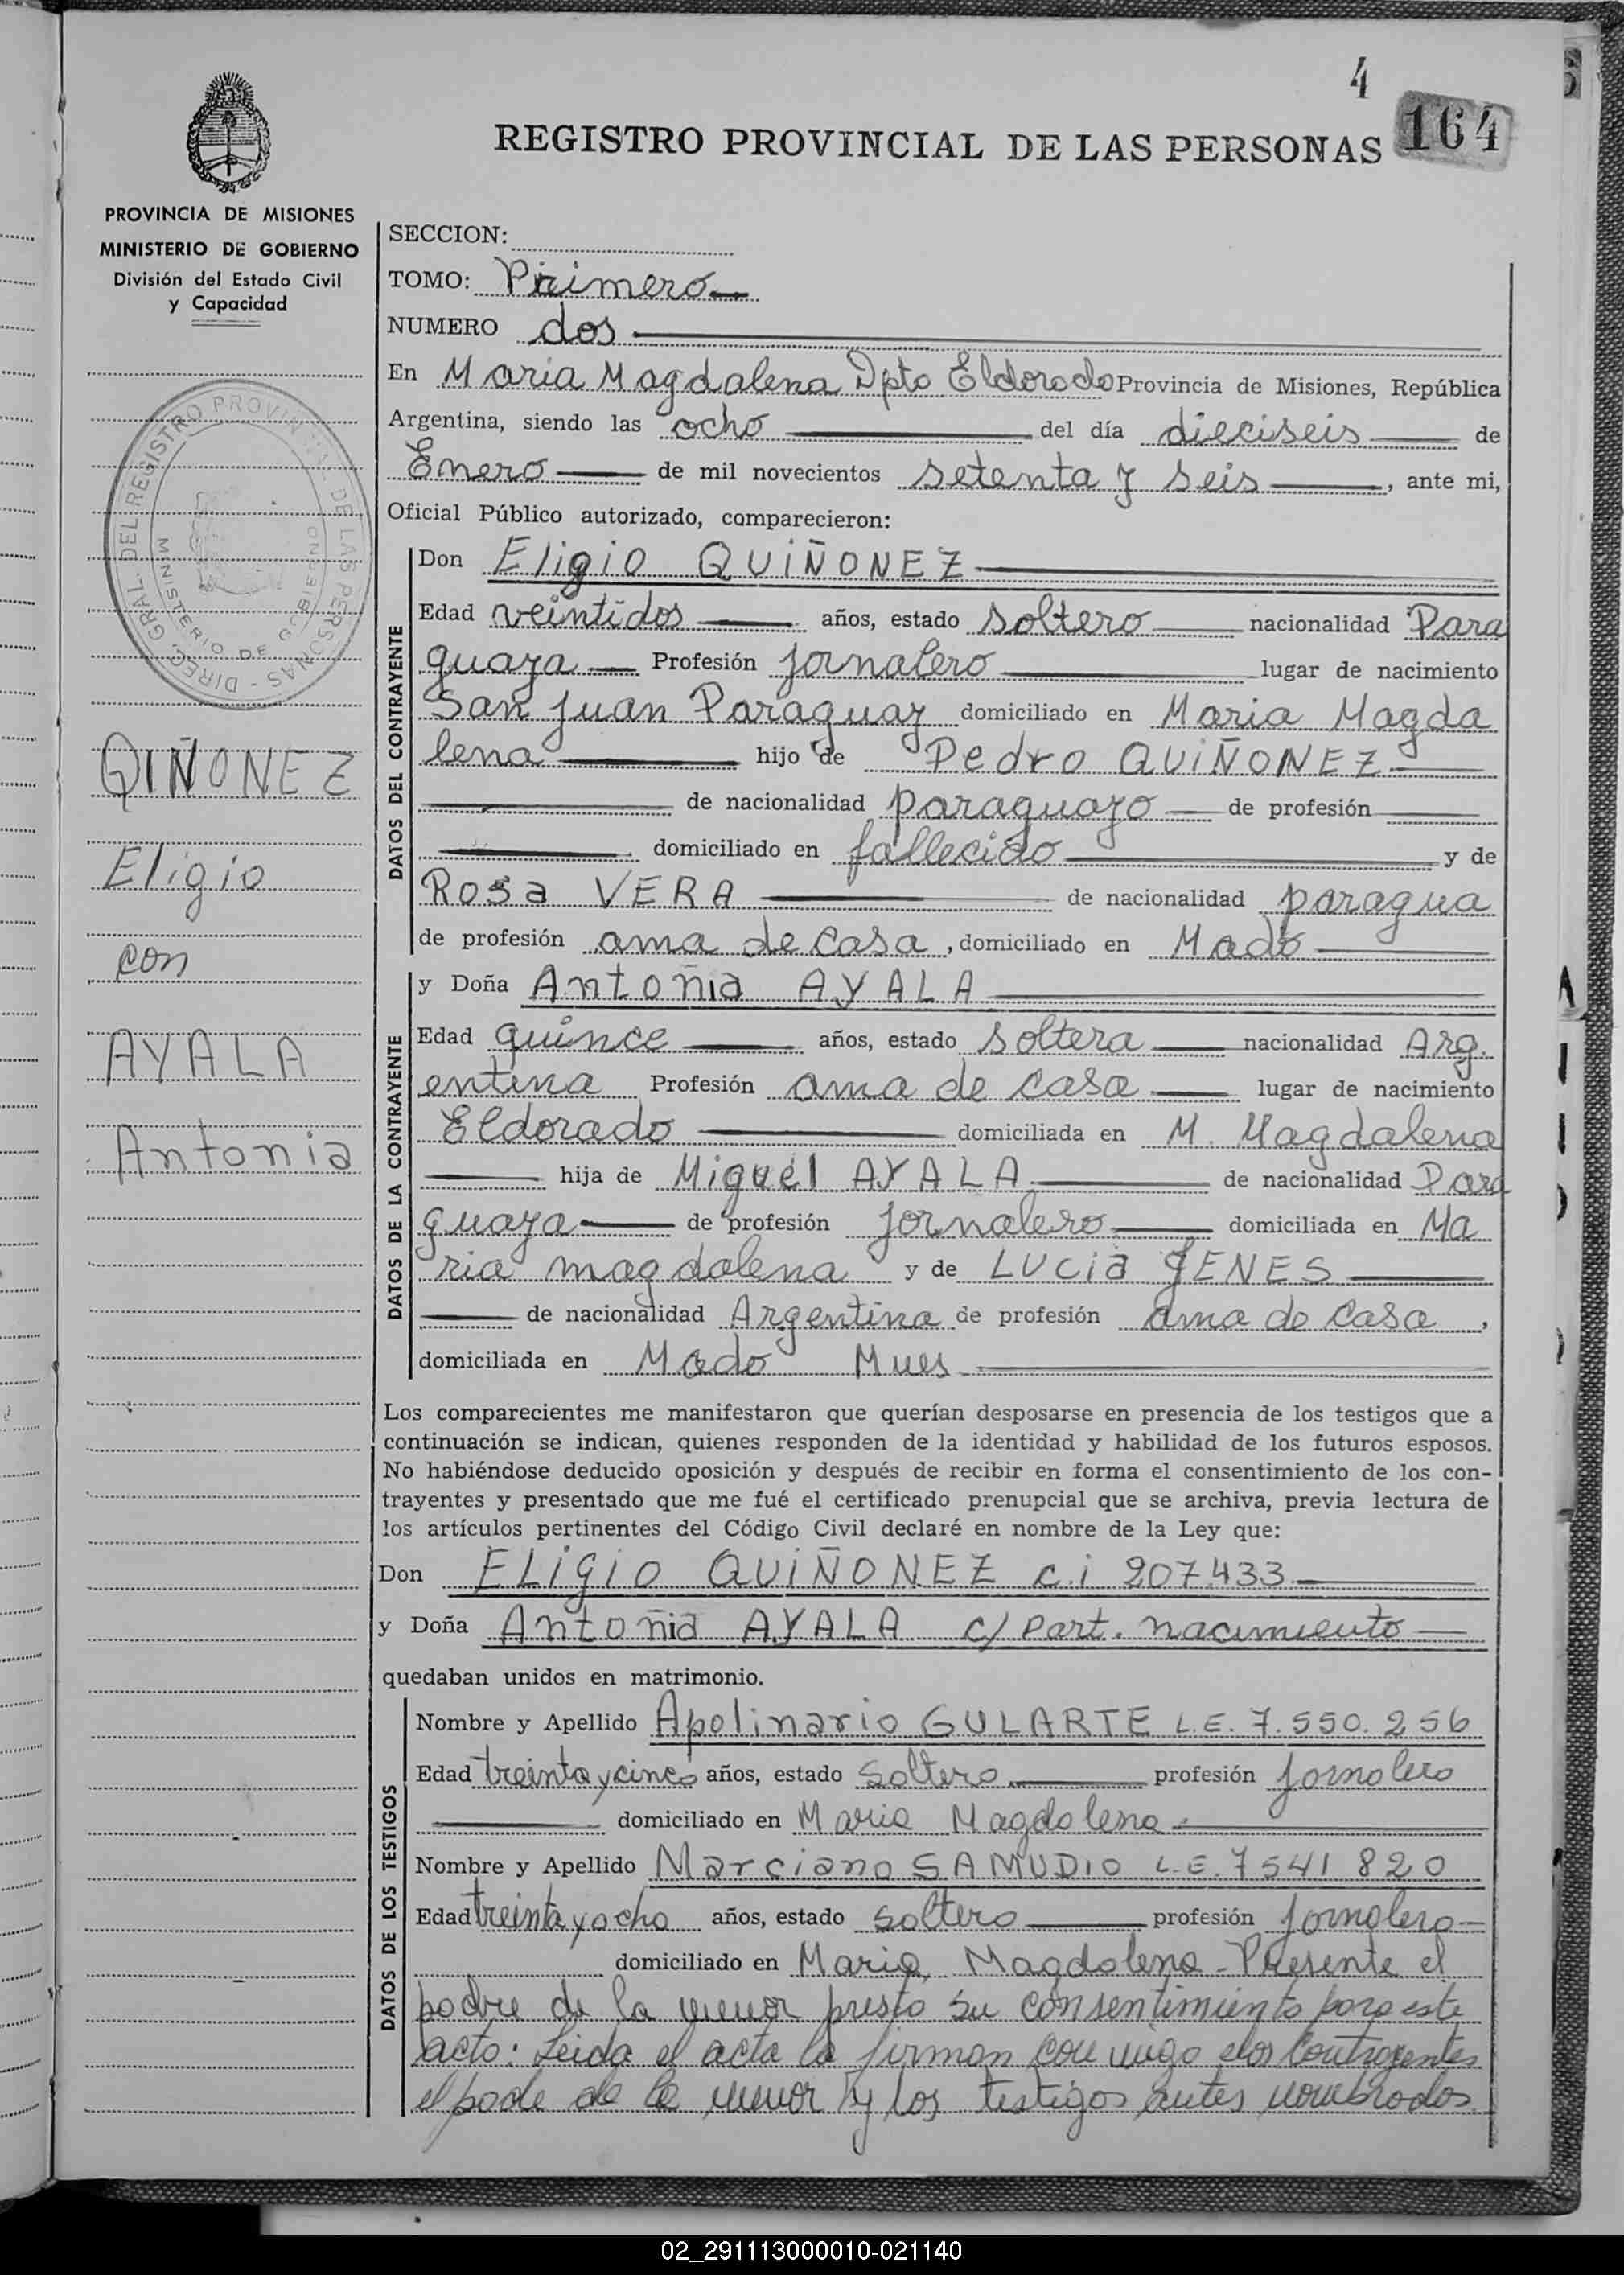 4
164
REGISTRO PROVINCIAL DE LAS PERSONAS
PROVINCIA DE MISIONES
MINISTERIO DE GOBIERNO
División del Estado Civil
y Capacidad
DIREC. GRAL. DEL REGISTRO PROVINCIAL DE LAS PERSONAS -
MINISTERIO DE GOBIERNO
QIÑONEZ
Eligio
con
AYALA
Antonia
SECCION:
TOMO: Primero
NUMERO dos
En Maria Magdalena Dpto Eldorado Provincia de Misiones, República
Argentina, siendo las ocho del día dieciseis de
Enero de mil novecientos setenta y seis, ante mi,
Oficial Público autorizado, comparecieron:
DATOS DEL CONTRAYENTE
Don Eligio QUIÑONEZ
Edad veintidos años, estado soltero nacionalidad Para
guaya Profesión jornalero lugar de nacimiento
San Juan Paraguay domiciliado en Maria Magda
lena hijo de Pedro QUIÑONEZ
de nacionalidad paraguayo de profesión
domiciliado en fallecido y de
Rosa VERA de nacionalidad paragua
de profesión ama de casa, domiciliado en Mado
DATOS DE LA CONTRAYENTE
y Doña Antoñia AYALA
Edad quince años, estado soltera nacionalidad Arg.
entina Profesión ama de casa lugar de nacimiento
Eldorado domiciliada en M. Magdalena
hija de Miguel AYALA de nacionalidad Para
guaya de profesión jornalero domiciliada en Ma
ria magdalena y de Lucia JENES
de nacionalidad Argentina de profesión ama de casa,
domiciliada en Mado Mues
Los comparecientes me manifestaron que querían desposarse en presencia de los testigos que a
continuación se indican, quienes responden de la identidad y habilidad de los futuros esposos.
No habiéndose deducido oposición y después de recibir en forma el consentimiento de los con-
trayentes y presentado que me fué el certificado prenupcial que se archiva, previa lectura de
los artículos pertinentes del Código Civil declaré en nombre de la Ley que:
Don ELigio QUIÑONEZ c.i 207.433
y Doña Antoñia AYALA c/ Part. nacimiento
quedaban unidos en matrimonio.
DATOS DE LOS TESTIGOS
Nombre y Apellido Apolinario GULARTE L.E. 7.550.256
Edad treinta y cinco años, estado soltero profesión jornalero
domiciliado en Maria Magdalena
Nombre y Apellido Marciano SAMUDIO L.E. 7541820
Edad treinta y ocho años, estado soltero profesión jornalero
domiciliado en Maria Magdalena - Presente el
padre de la menor presto su consentimiento para este
acto: Leida el acta la firman con migo elos contrayentes
el pade de la menor y los testigos antes nombrados.
02_291113000010-021140